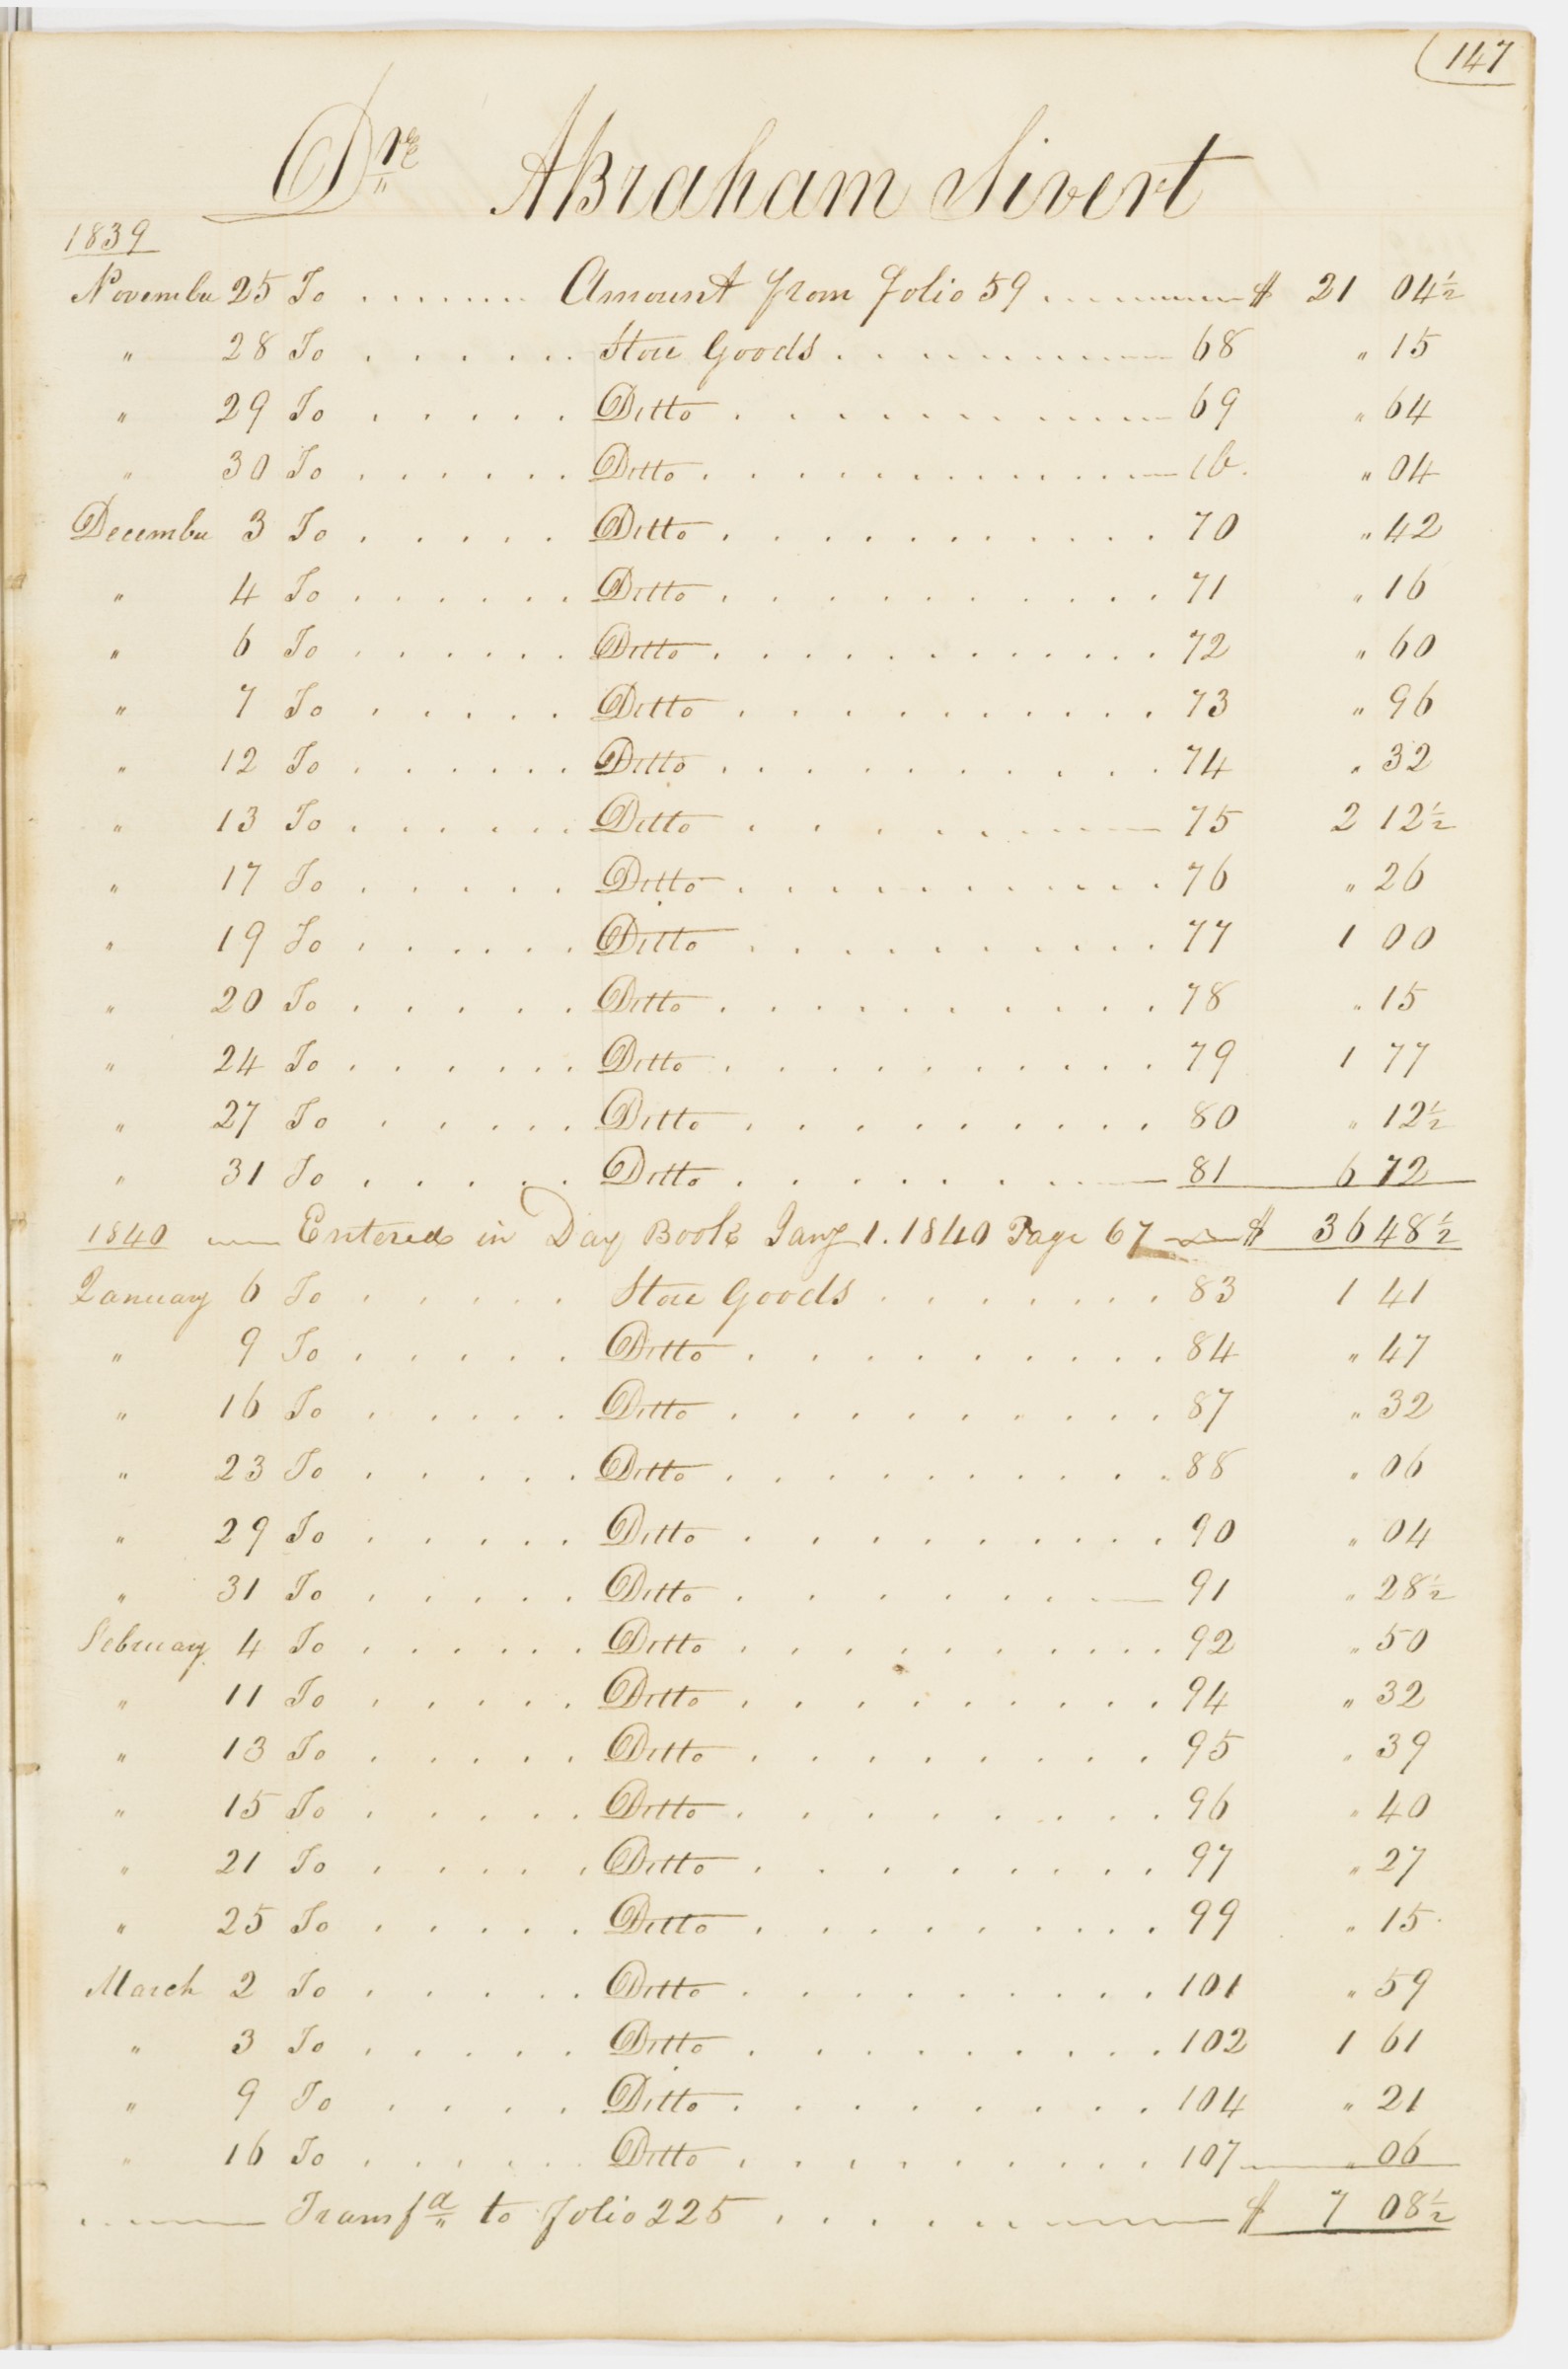 147
Dre Abraham Sivert
1839
November 25 To ........ Amount from folio 59 ........ $ 21 04½
" 28 To ...... Store Goods ........ 68 " 15
" 29 To ..... Ditto ........ 69 " 64
" 30 To ...... Ditto ........ ib. " 04
December 3 To ..... Ditto ........ 70 " 42
" 4 To ...... Ditto ........ 71 " 16
" 6 To ...... Ditto ........ 72 " 60
" 7 To ..... Ditto ........ 73 " 96
" 12 To ...... Ditto ........ 74 " 32
" 13 To ...... Ditto ........ 75 2 12½
" 17 To ..... Ditto ........ 76 " 26
" 19 To ...... Ditto ........ 77 1 00
" 20 To ..... Ditto ........ 78 " 15
" 24 To ...... Ditto ........ 79 1 77
" 27 To ..... Ditto ........ 80 " 12½
" 31 To ..... Ditto ........ 81 6 72
1840 — Entered in Day Book Jany 1. 1840 Page 67 — $ 36 48½
January 6 To ..... Store Goods ....... 83 1 41
" 9 To ..... Ditto ........ 84 " 47
" 16 To ..... Ditto ........ 87 " 32
" 23 To ..... Ditto ........ 88 " 06
" 29 To ..... Ditto ........ 90 " 04
" 31 To ..... Ditto ........ 91 " 28½
February 4 To ..... Ditto ........ 92 " 50
" 11 To ..... Ditto ........ 94 " 32
" 13 To ..... Ditto ........ 95 " 39
" 15 To ..... Ditto ........ 96 " 40
" 21 To ..... Ditto ........ 97 " 27
" 25 To ..... Ditto ........ 99 " 15
March 2 To ..... Ditto ........ 101 " 59
" 3 To ..... Ditto ........ 102 1 61
" 9 To .... Ditto ........ 104 " 21
" 16 To ..... Ditto ........ 107 " 06
Transfd to folio 225 ........ $ 7 08½